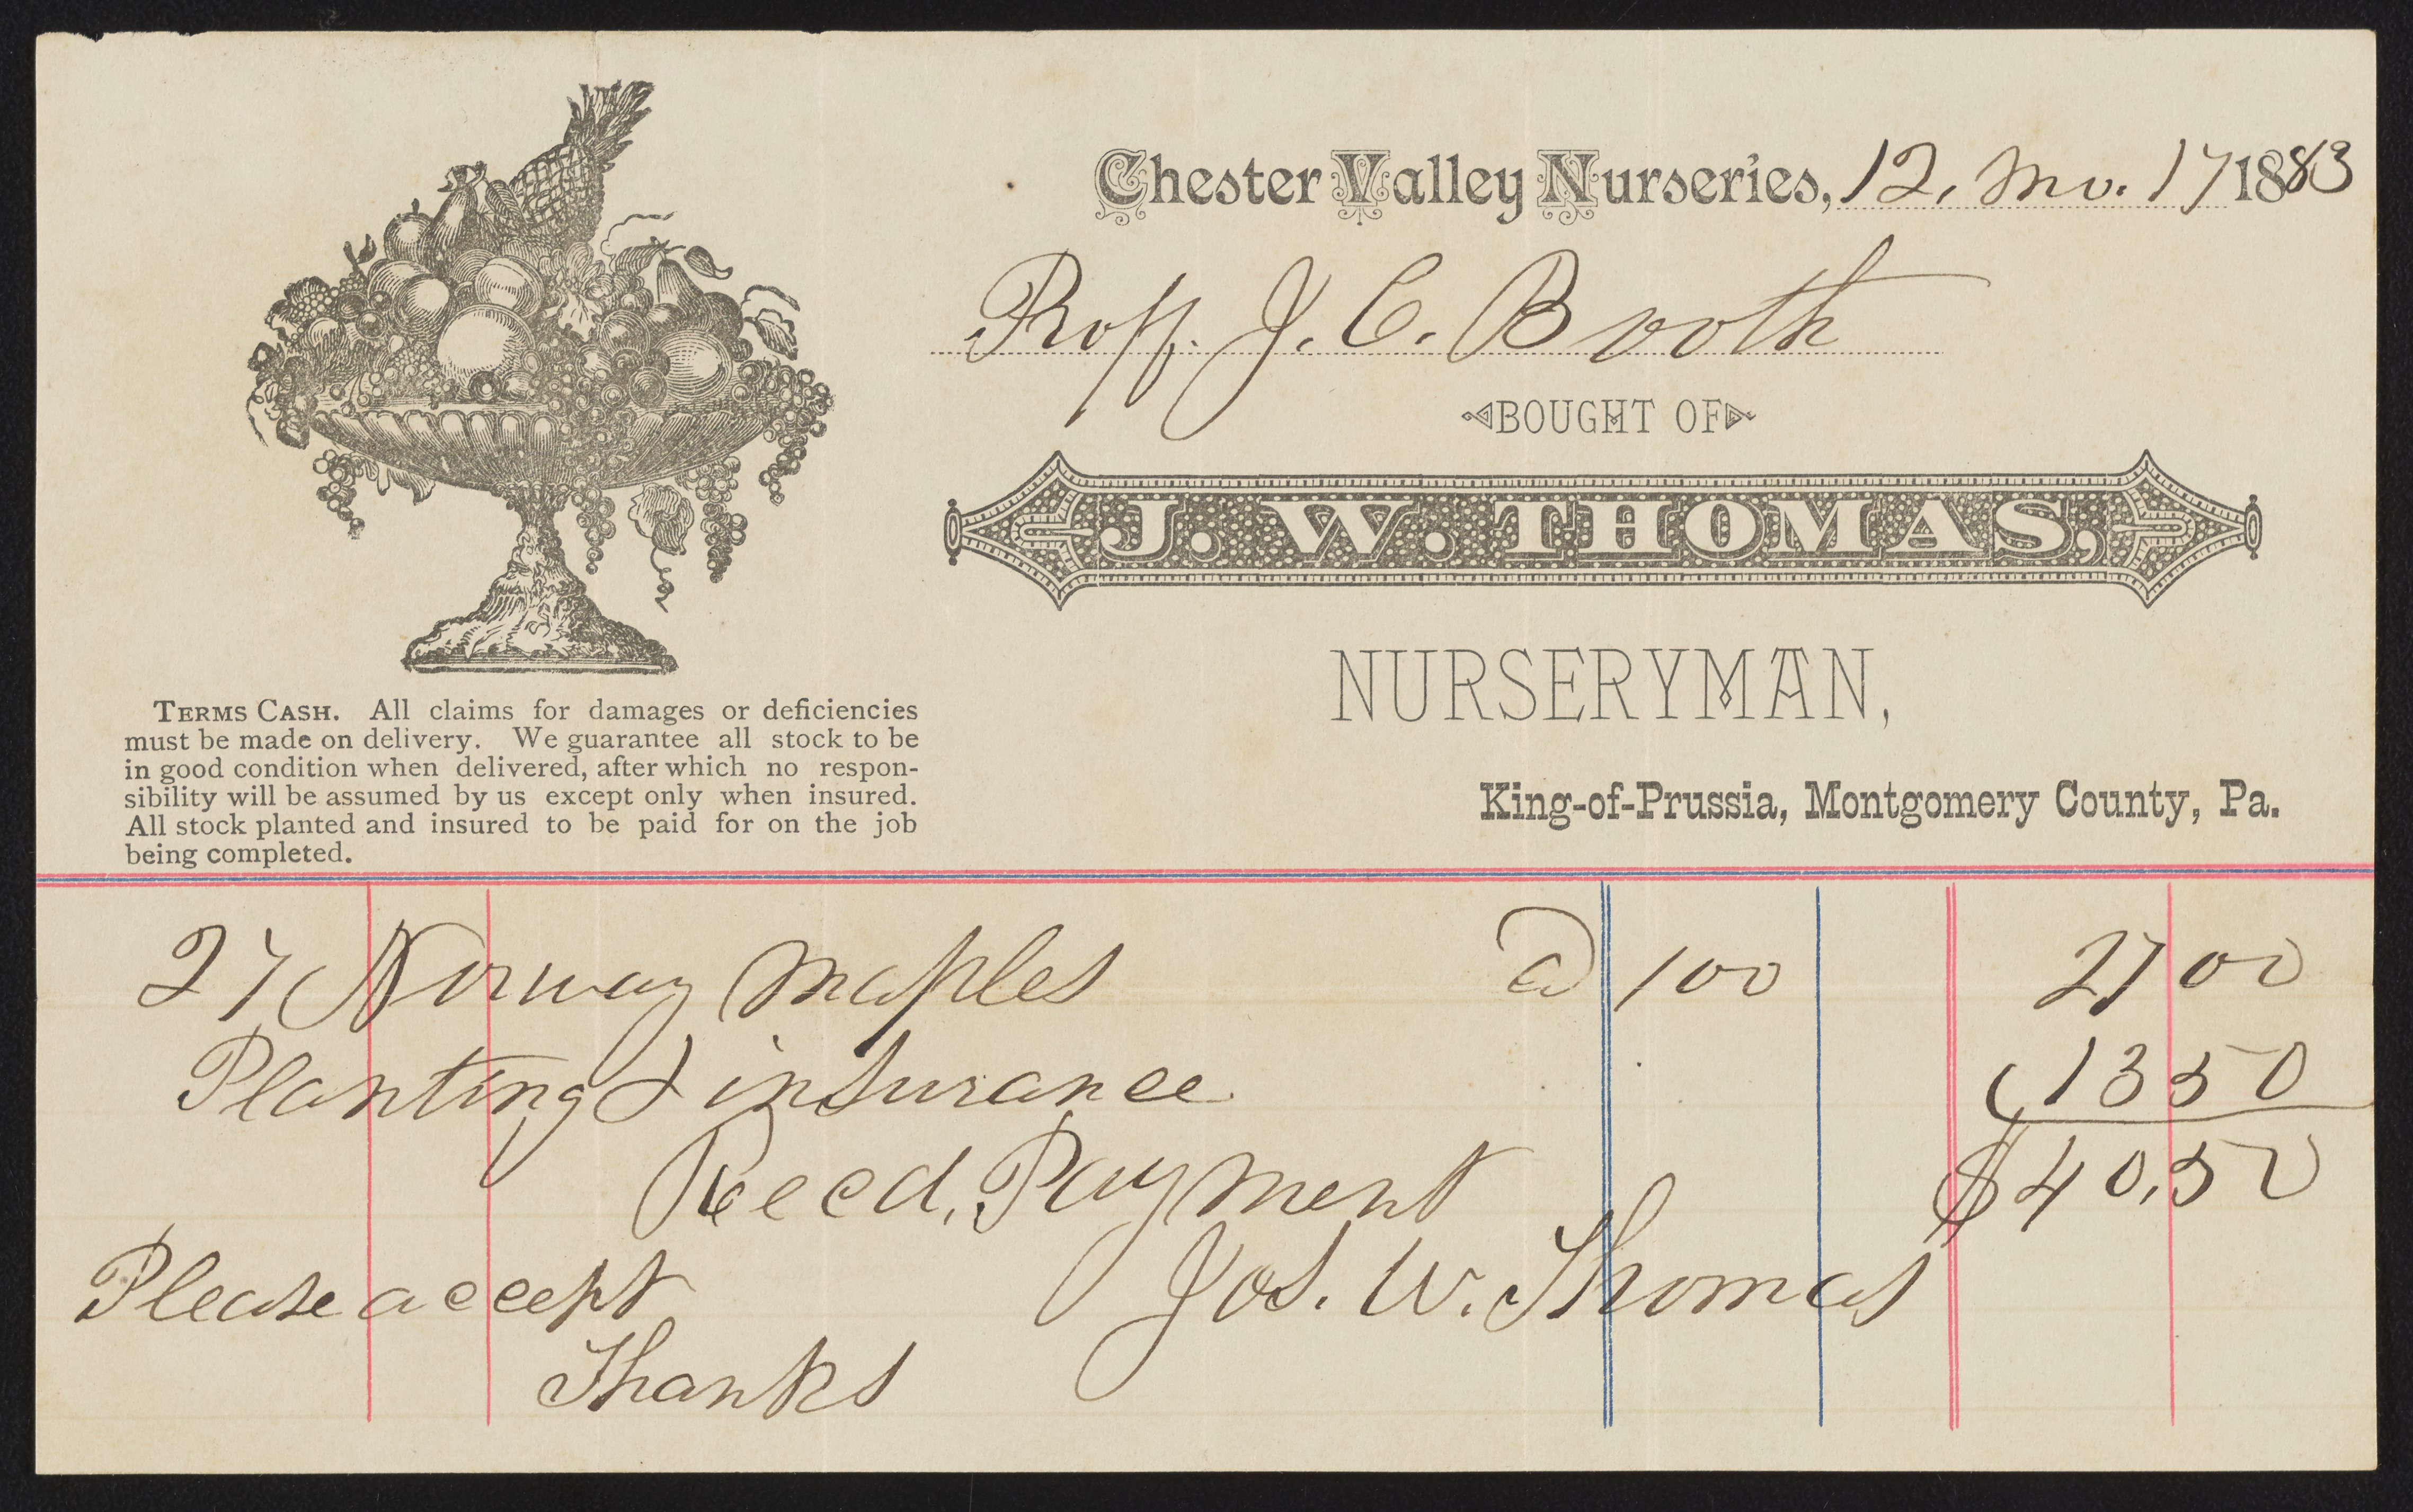 Chester Valley Nurseries, 12. Mo. 17 1883
Proff. J. C. Booth
BOUGHT OF
J. W. THOMAS,
NURSERYMAN,
King-of-Prussia, Montgomery County, Pa.
TERMS CASH. All claims for damages or deficiencies
must be made on delivery. We guarantee all stock to be
in good condition when delivered, after which no respon-
sibility will be assumed by us except only when insured.
All stock planted and insured to be paid for on the job
being completed.
27 Norway Maples @ 100 27 00
Planting & insurance 13 50
$40.50
Recd. Payment
Jos. W. Thomas
Please accept
Thanks